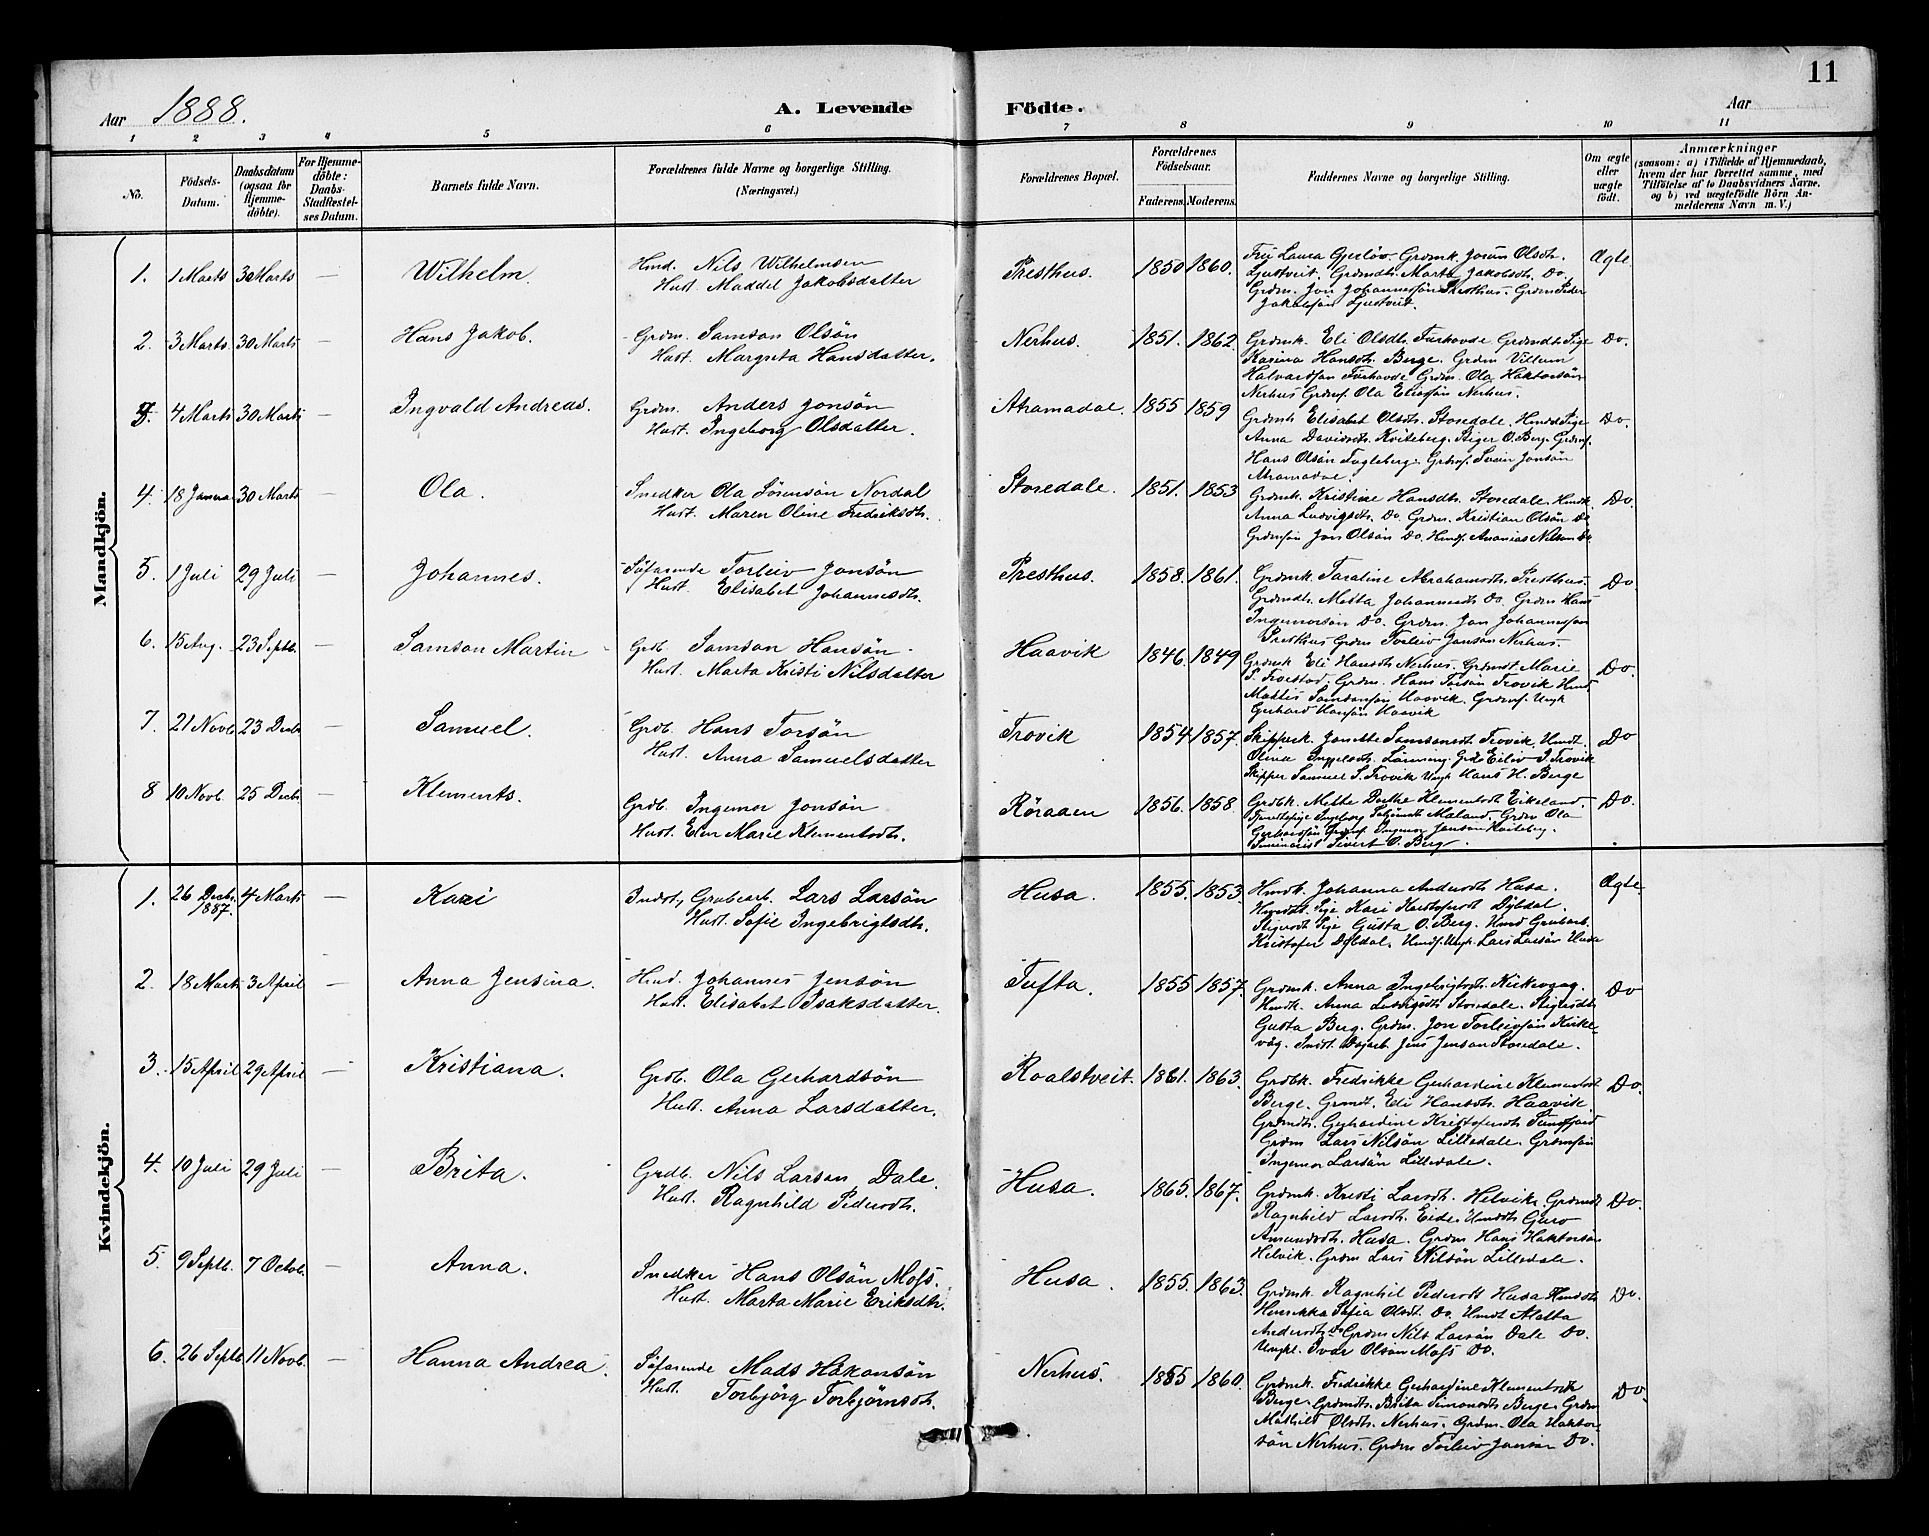 11
Aar 1888. A. Levende Födte. Aar
1 2 3 4 5 6 7 8 9 10 11
No. Födsels-Datum. Daabsdatum (ogsaa for Hjemme-döbte). For Hjemme-döbte: Daabs-Stadfæstel-ses Datum. Barnets fulde Navn. Forældrenes fulde Navne og borgerlige Stilling. (Næringsvei.) Forældrenes Bopæl. Forældrenes Födselsaar. Faderens. Moderens. Faddernes Navne og borgerlige Stilling. Om ægte eller uægte födt. Anmærkninger (saasom: a) i Tilfælde af Hjemmedaab, hvem der har forrettet samme, med Tilföielse af to Daabsvidners Navne, og b) ved uægtefödte Börn An-melderens Navn m. V.)
Mandkjön.
1. 1 Marts 30 Marts — Wilhelm. Hmd. Nils Wilhelmsen
Hust. Maddel Jakobsdatter
Presthus. 1850 1860. Fru Laura Gjerlöv. Grdmk. Josun Olsdt.
Ljustveit. Grdmdt. Marta Jakobsdt. Do.
Grdm. Jon Johannessön Presthus. Grdm Peder
Jakobsön Ljustveit.
Ægte.
2. 3 Marts. 30 Marts — Hans Jakob. Grdm. Samson Olsön
Hust. Margreta Hansdatter.
Nerhus. 1851. 1862. Grdmk. Eli Olsdt. Furhovde Grdmdt. Pige
Karina Hansdt. Berge. Grdm Villum
Halvardsön Furhovde Grdm. Ola Haktorsön
Nerhus Grdmf. Ola Eliasön Nerhus.
Do.
3. 4 Marts 30 Marts — Ingvald Andreas. Grdm. Anders Jonsön
Hust. Ingeborg Olsdatter.
Atramadal. 1855 1859 Grdmk. Elisabet Olsdt. Storedale. Hmdt Pige
Anna Davidsdt. Kviteberg. Stiger O. Berg. Grdmf.
Hans Olsön Fugleberg. Grdmf. Svein Jonsön
Atramadal.
Do.
4. 18 Janua 30 Marts — Ola. Snedker Ola Sörensön Nordal
Hust. Maren Oline Fredriksdt.
Storedale. 1851. 1853 Grdmk. Kristine Hansdt. Storedale. Hmdk.
Anna Ludvigsdt. Do. Grdm. Kristian Olsön Do
Grdmsön Jon Olsön Do. Hmdf. Ananias Nilsen Do.
Do.
5. 1 Juli 29 Juli — Johannes. Söfarende Torleiv Jonsön
Hust. Elisabet Johannesdt.
Presthus. 1858. 1861. Grdmk. Taraline Abrahamsdt. Presthus.
Grdmdt. Metta Johannesdt Do. Grdm Hans
Ingemorsön Do. Grdm. Jon Johannessön
Presthus Grdm Torleiv Jonsön Nerhus.
Do
6. 15 Aug. 23 Septb. — Samson Martin Grdb. Samson Hansön
Hust. Marta Kristi Nilsdatter
Haavik 1846. 1849 Grdmk Eli Hansdt Nerhus. Grdmdt Marie
S. Trovik. Grdm. Hans Torsön Trovik Hmd.
Mattis Samsonsön Haavik. Grdmf. Ungk
Gerhard Hansön Haavik
Do.
7. 21 Novb 23 Decb. — Samuel. Grdb. Hans Torsön
Hust. Anna Samuelsdatter
Trovik 1854 1857. Skipperk. Jonette Samsonsdt Trovik. Hmdt.
Olina Lönning. Grdb Eiliv J. Trovik
Skipper Samuel S. Trovik Ungk Hans H. Berge
Do
8 10 Novb. 25 Decb. Klements. Grdb. Ingemor Jonsön
Hust. Elen Marie Klementsdt.
Röraaen 1856. 1858. Grdbk. Mette Dorthe Klementsdt Eikeland.
Ingeborg Maland. Grdm Ola
Gerhardsön Grdmf. Ingemor Jonsön Kviteberg.
Seminarist Sivert O. Berg.
Do.
Kvindekjön.
1. 26 Decb. 1887. 4 Marts — Kari Indst., Grubearb. Lars Larsön
Hust. Sofie Ingebrigtsdt.
Husa. 1855. 1853. Hmdk. Johanna Andersdt. Husa.
Hmdt. Pige Kari Kristofersdt Dybdal.
Stigersdt Pige Gusta O. Berg. Hmd Grubearb.
Kristofer Dybdal. Hmdf. Ungk. Lars Larsön Husa
Ægte.
2. 18 Mart 3 April — Anna Jensina. Hmd. Johannes Jensön
Hust. Elisabet Isaksdatter.
Tufta. 1855 1857. Grdmk. Anna Ingebrigtsdt. Kirkevaag.
Hmdk. Anna Ludvigsdt Storedale. Stigersdt
Gusta Berg. Grdm. Jon Torleivsön Kirke-
våg. Indst. Dagarb. Jens Jensen Storedale.
Do
3. 15 April 29 April — Kristiana. Grdb. Ola Gerhardsön
Hust. Anna Larsdatter.
Roalstveit. 1861. 1863. Grdbk. Fredrikke Gerhardine Klementsdt
Berge. Grdmdt. Eli Hansdt. Haavik
Grdmdt. Gerhardine Kristofersdt Sundfjord
Grdm Lars Nilsön Lilledale. Grdmsön
Ingemor Larsön Lilledale.
Do.
4. 10 Juli 29 Juli — Brita. Grdb. Nils Larsen Dale.
Hust. Ragnhild Pedersdt.
Husa. 1865. 1867. Grdmk. Kristi Larsdt. Helvik. Grdmdt
Ragnhild Larsdt. Eide. Hmdt. Guro
Amundsdt. Husa. Grdm Hans Haktorsön
Helvik. Grdm Lars Nilsön Lilledale.
Do.
5. 9 Septb. 7 Octob. — Anna. Snedker Hans Olsön Moss.
Hust. Marta Marie Eriksdt.
Husa. 1855. 1863. Grdmk. Ragnhil Pedersdt Husa Hmdt
Henrikka Sofia Olsdt. Do. Hmdt Matta
Andersdt. Do Grdm Nils Larsön Dale Do.
Ungk. Ivar Olsön Moss Do.
Do.
6. 26 Septb. 11 Novb. — Hanna Andrea. Söfarende Mads Håkonsön
Hust. Torbjörg Torbjörnsdt.
Nerhus. 1855 1860. Grdmk. Fredrikke Gerhardine Klementsdt
Berge. Grdmdt. Brita Simonsdt Berge. Grdm
Mathild Olsdt. Nerhus. Grdm. Ola Haktor-
sön Nerhus. Grdm Torleiv Jonsen Do.
Do.